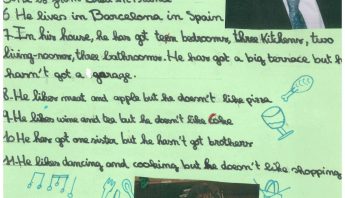 6. He lives in Barcelona in Spain
7. In his house, he has got teen bedrooms, three kitchens, two
living-rooms, three bathrooms. He has got a big terrace but he
hasn't got a garage.
8. He likes meat and apple but he doesn't like pizza
9. He likes wine and tea but he doesn't like Coke
10. He has got one sister but he hasn't got brothers
11. He likes dancing and cooking but he doesn't like shopping